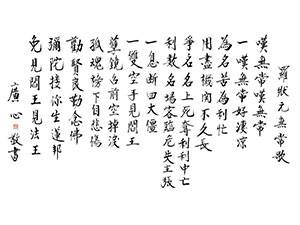 羅狀元無常歌
嘆無常嘆無常
一嘆無常好凄凉
為名苦為利忙
用盡機関不久長
爭名名上死奪利利中亡
利數名場容臨危失主張
一息断四大僵
一雙空手見閻王
孽鏡台前空掉淚
孤魂榜下自悲傷
勸賢良勤念佛
彌陀接你生蓮邦
免見閻王見法王
廣心敬書